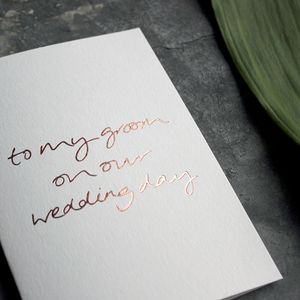 to my groom
on our
wedding day